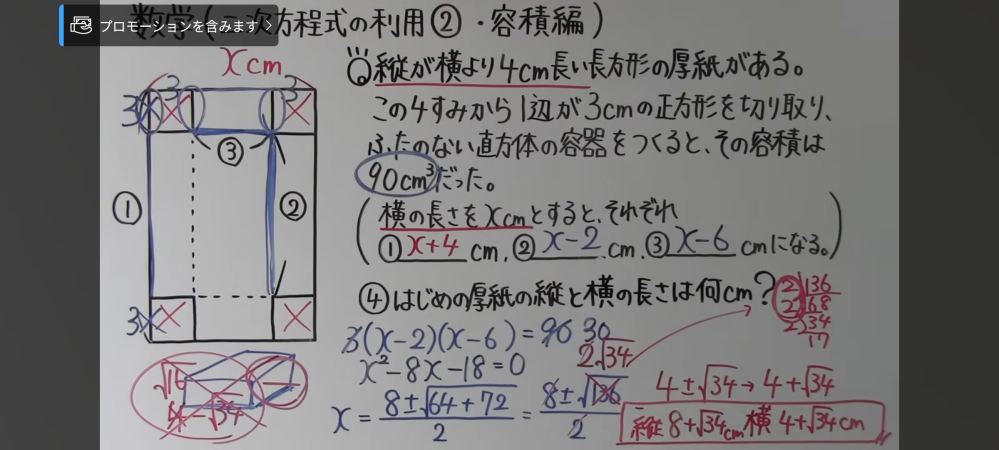 プロモーションを含みます
数学(二次方程式の利用②・容積編)
xcm
縦が横より4cm長い長方形の厚紙がある。
この4すみから1辺が3cmの正方形を切り取り、
ふたのない直方体の容器をつくると、その容積は
90cm³だった。
(横の長さをxcmとすると、それぞれ
① x+4 cm、② x-2 cm、③ x-6 cmになる。)
④はじめの厚紙の縦と横の長さは何cm?
3(x-2)(x-6)=90 30
x²-8x-18=0
x= 8±√64+72 / 2 = 8±√136 / 2
2√34
2)136
2)68
2)34
17
4±√34→4+√34
縦8+√34cm 横4+√34cm
3 3 3
①
②
③
3
√16
4-√34